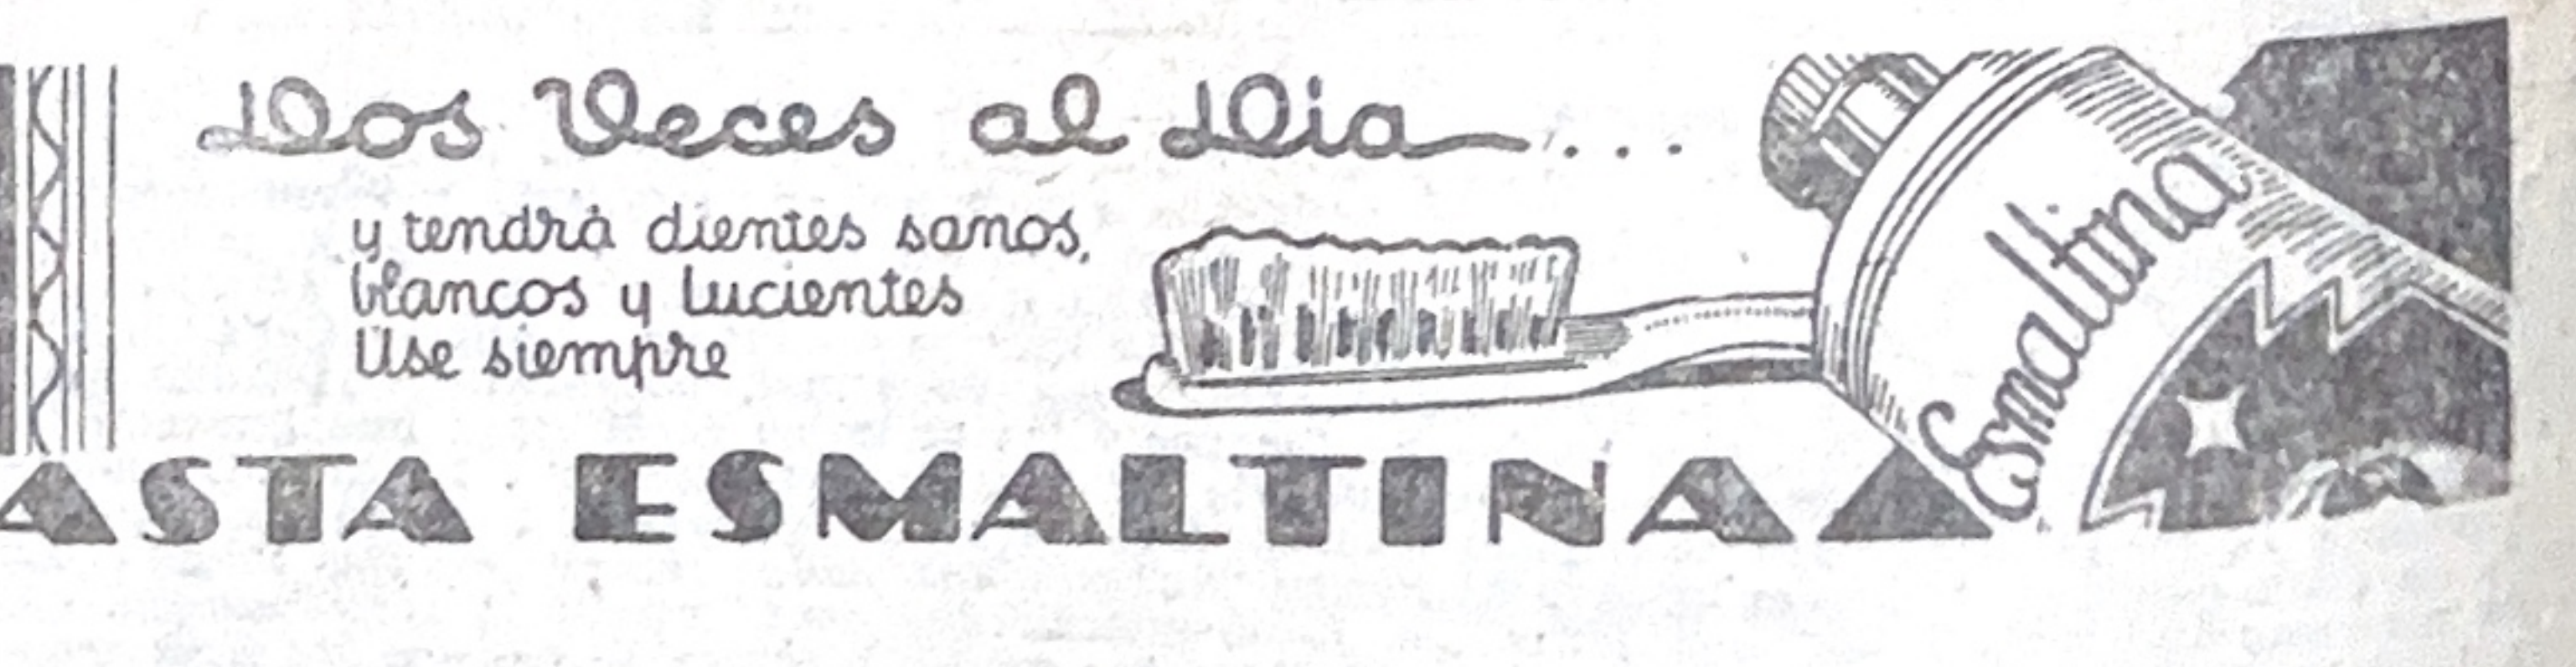 Dos Veces al Dia...
y tendrá dientes sanos,
blancos y lucientes
Use siempre
ASTA ESMALTINA
Esmaltina